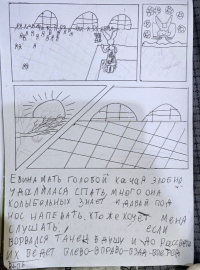 ЕВИНА МАТЬ ГОЛОВОЙ КАЧАЯ ЗЛОБНО
УДАЛИЛАСЯ СПАТЬ, МНОГО ОНА
КОЛЫБЕЛЬНЫХ ЗНАЕТ И ДАВАЙ ПОД
НОС НАПЕВАТЬ, КТО ЖЕ ХОЧЕТ МЕНЯ
СЛУШАТЬ, ЕСЛИ
ВОРВАЛСЯ ТАНЕЦ В ДУШУ И ДО РАССВЕТА
ИХ ВЕДЕТ ВЛЕВО-ВПРАВО-ВЗАД-ВПЕРЕД